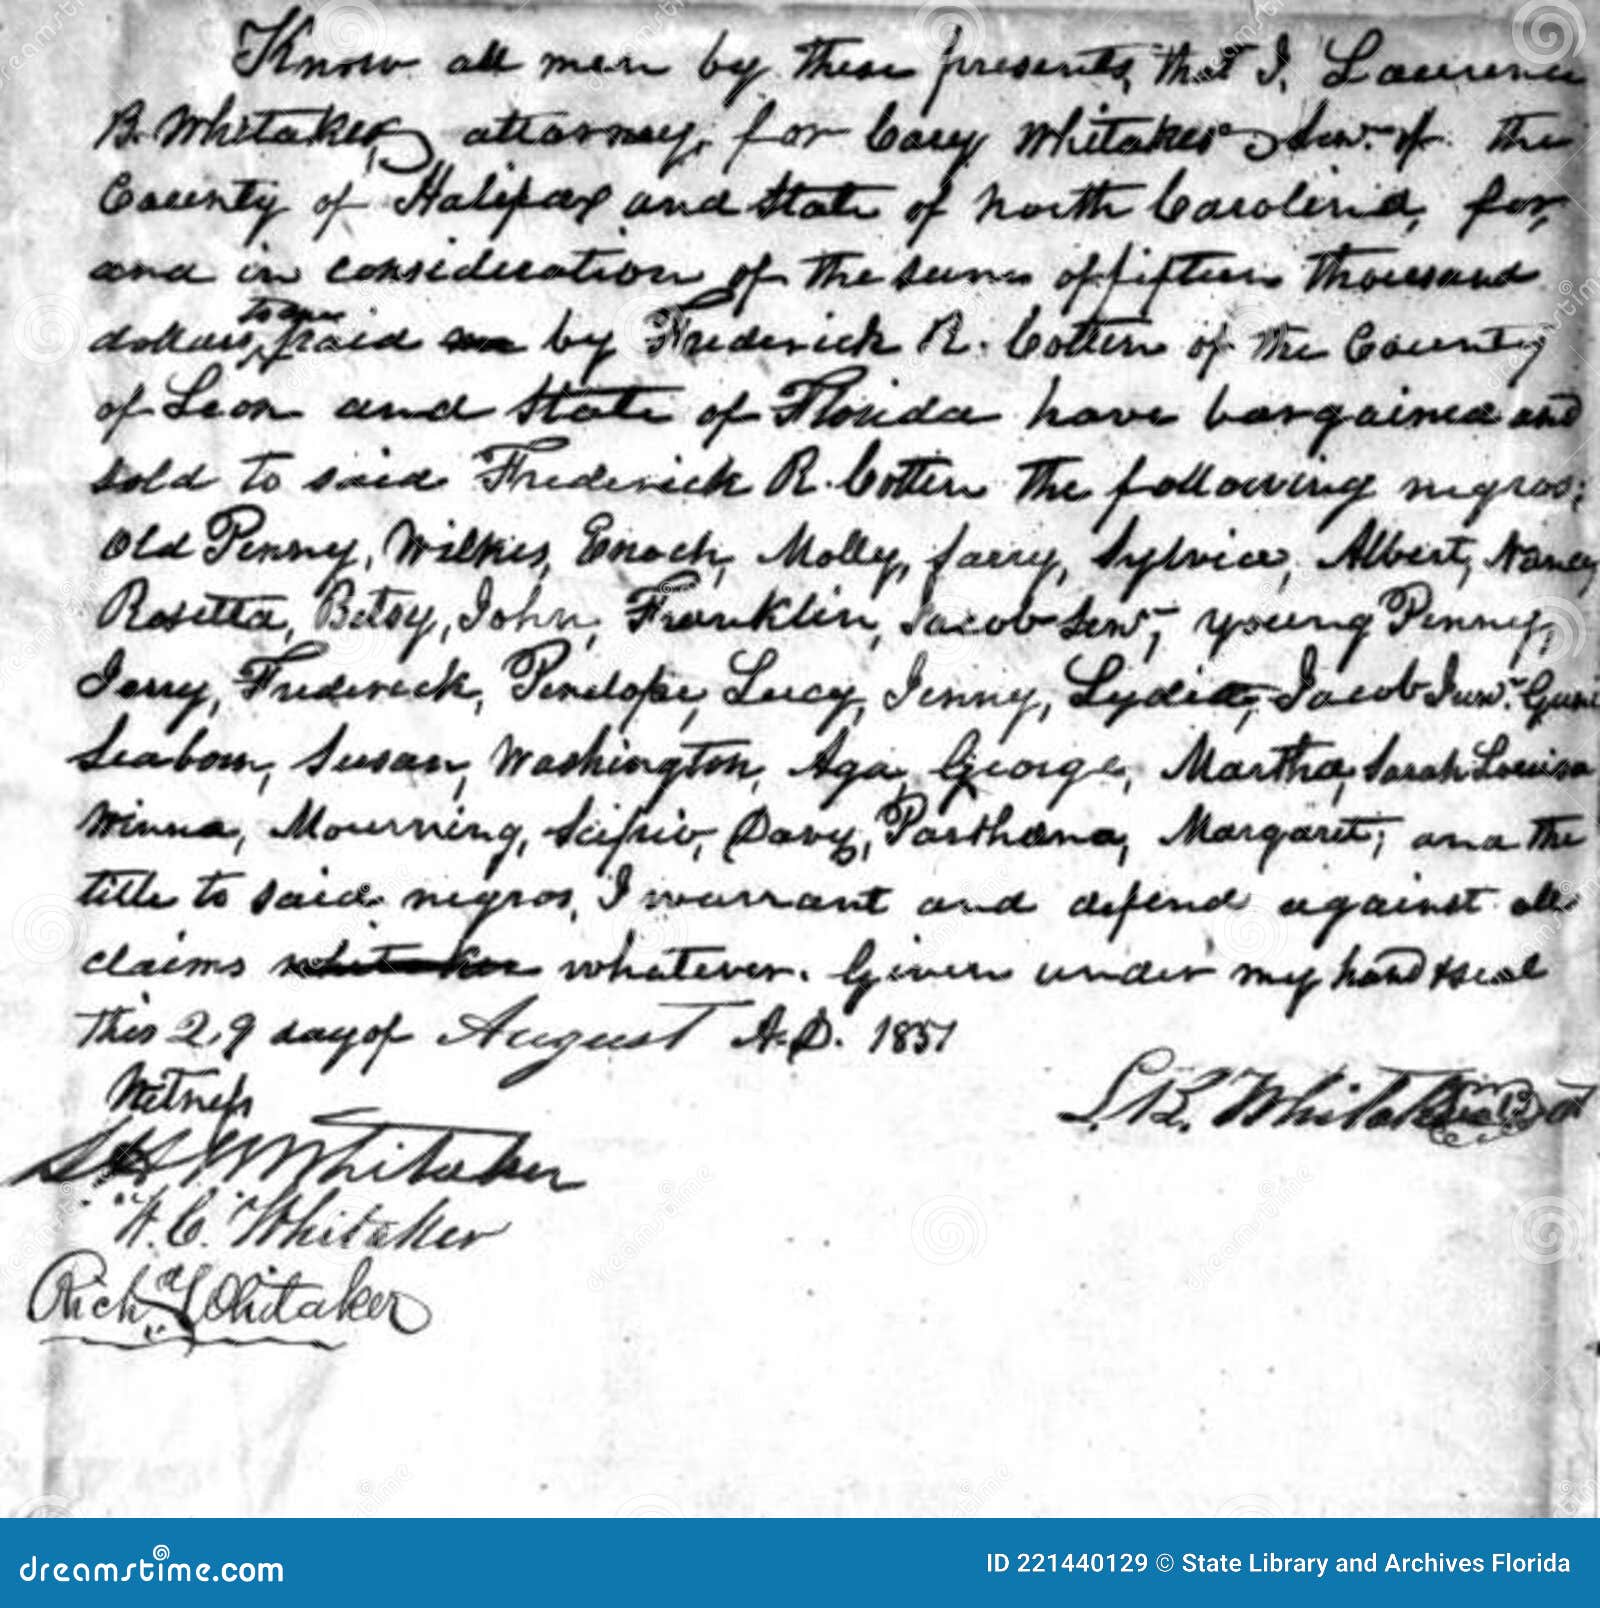 Know all men by these presents, that I, Laurence
B. Whitaker, attorney, for Cary Whitaker Senr. of the
County of Halifax and State of North Carolina, for,
and in consideration of the sum of fifteen thousand
dollars, to me paid by Frederick R. Cotten of the County
of Leon and State of Florida have bargained and
sold to said Frederick R. Cotten the following negros;
Old Penny, Wilkes, Enoch, Molly, Jarry, Sylvia, Albert, Nancy
Rosetta, Betsy, John, Franklin, Jacob Senr, young Penny,
Jerry, Frederick, Penelope, Lucy, Jenny, Lydia, Jacob Junr.
Seaborn, Susan, Washington, Aga, George, Martha, Sarah Louisa
Winna, Mourning, Scipio, Davy, Parthena, Margaret; and the
title to said negros, I warrant and defend against all
claims whitaker whatever. Given under my hand & seal
this 29 day of August A.D. 1851
Witness
L. B. Whitaker
Whitaker
H. C. Whitaker
Rich d Whitaker
dreamstime.com
ID 221440129 © State Library and Archives Florida